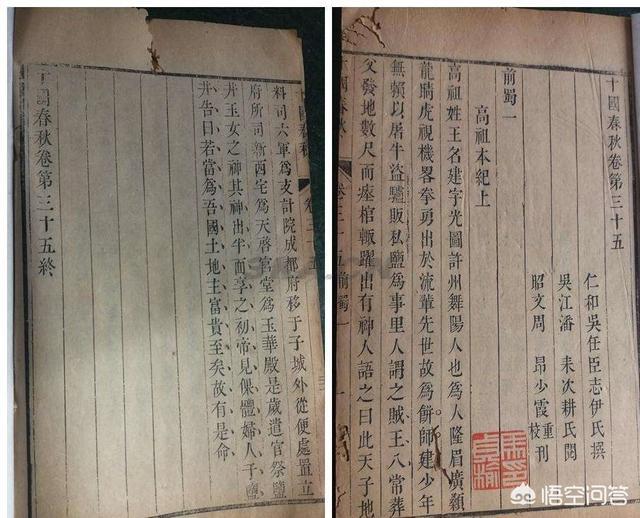 十國春秋卷第三十五
仁和吳任臣志伊氏撰
吳江潘 耒次耕氏閱
昭文周 昂少霞重刊校
前蜀一
高祖本紀上
高祖姓王名建字光圖許州舞陽人也爲人隆眉廣顙
龍睛虎視機畧拳勇出於流輩先世故爲餅師建少年
無賴以屠牛盜驢販私鹽爲事里人謂之賊王八常葬
父發地數尺而瘞棺輙躍出有神人語之曰此天子地
十國春秋 卷三十五前蜀一 一
十國春秋 卷三十五
料司六軍爲支計院成都府移于子城外從便處置立
府所司新西宅爲天啓宮堂爲玉華殿是歲遣官祭鹽
井玉女之神其神出半而享之初帝見倮體婦人于鹽
井告曰若當爲吾國土地主富貴至矣故有是命
十國春秋卷第三十五終
悟空问答